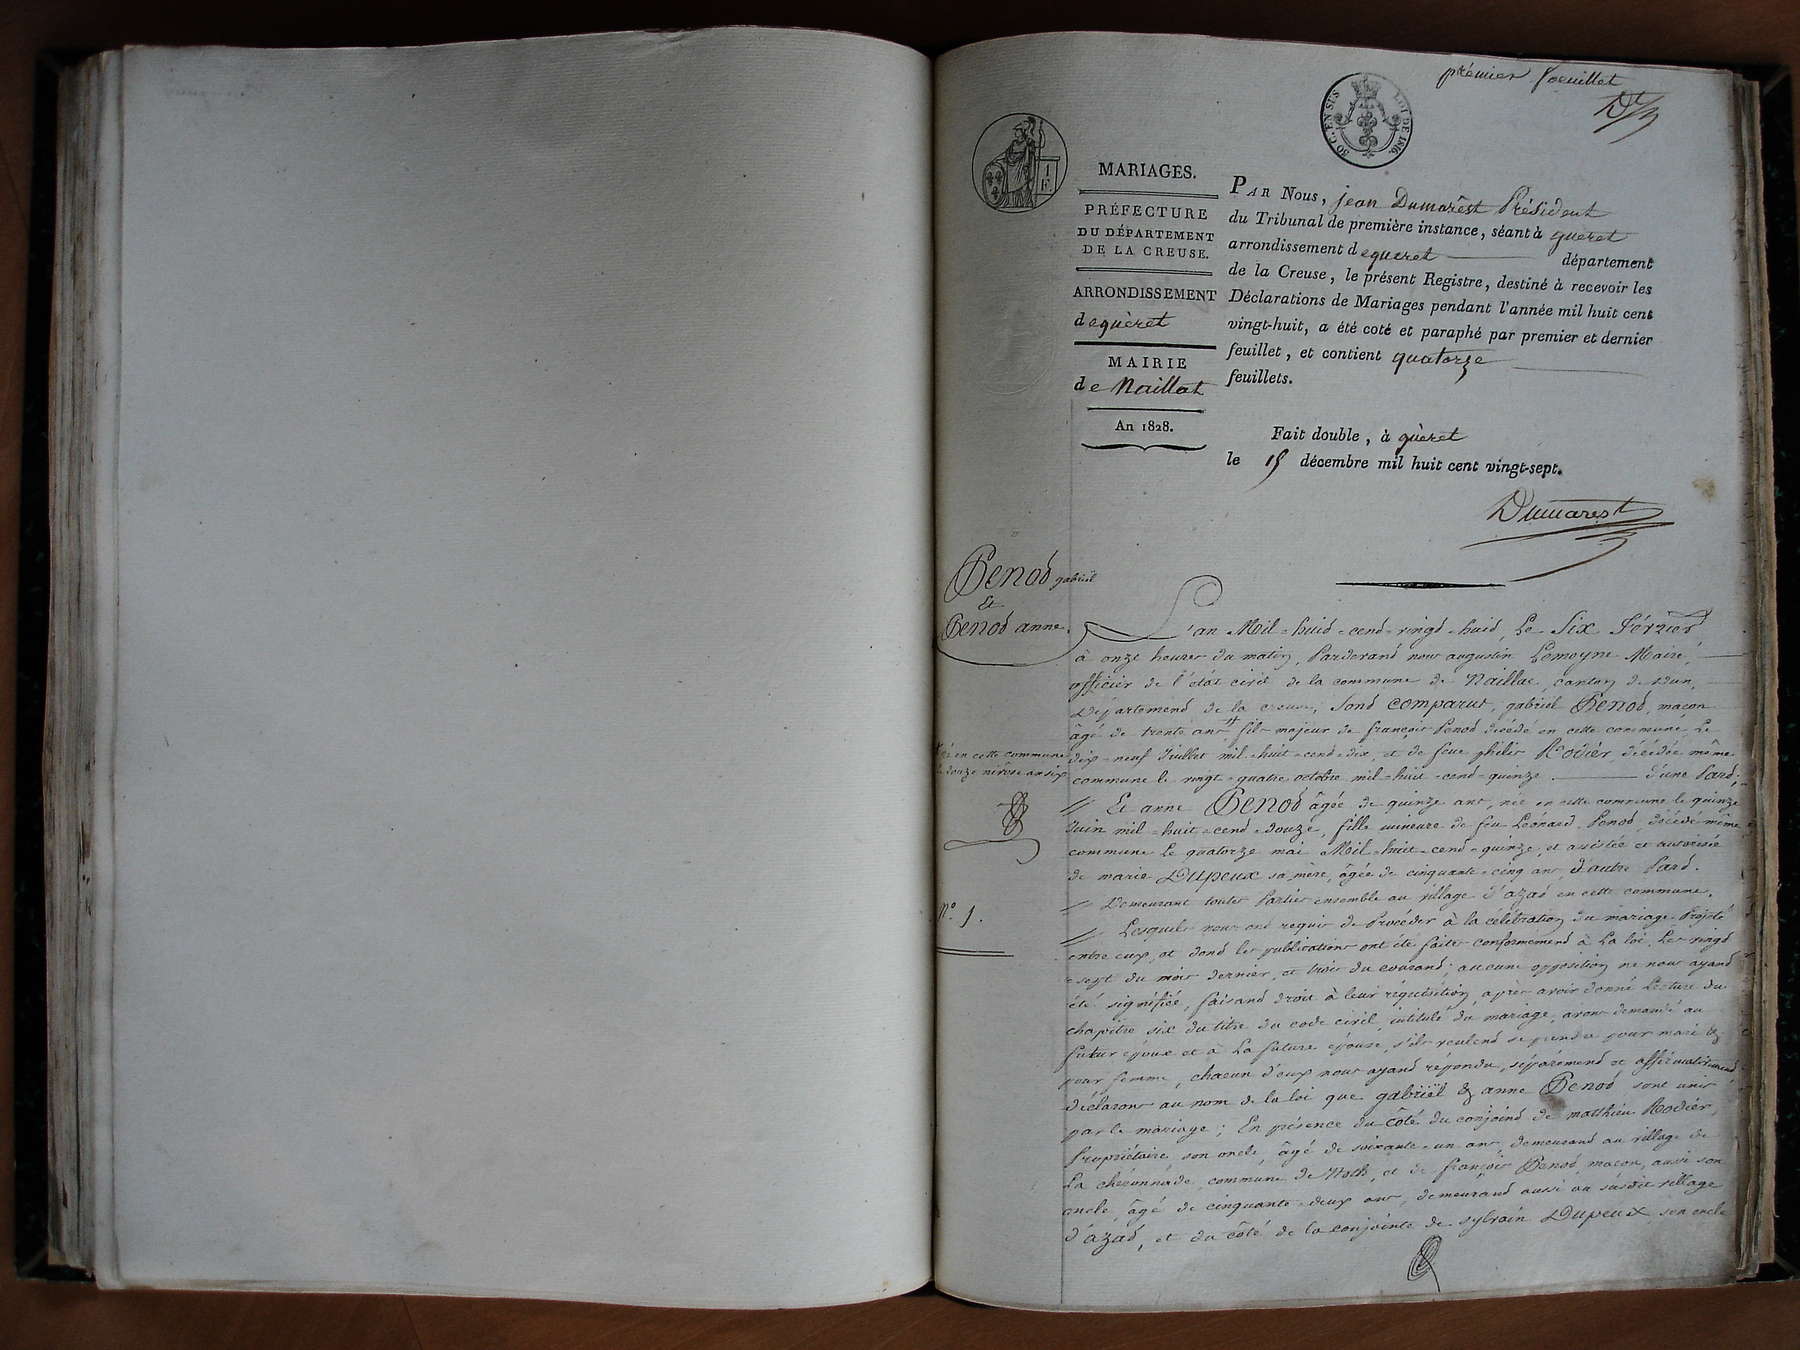 prémier foeuillet
30 C. EN SUS LOI DE 1816.
1 F.
MARIAGES.
PRÉFECTURE
DU DÉPARTEMENT
DE LA CREUSE.
ARRONDISSEMENT
de guèret
MAIRIE
de Naillat
An 1828.
PAR Nous, jean Dumarest Président
du Tribunal de première instance, séant à guèret
arrondissement de guèret département
de la Creuse, le présent Registre, destiné à recevoir les
Déclarations de Mariages pendant l'année mil huit cent
vingt-huit, a été coté et paraphé par premier et dernier
feuillet, et contient quatorze
feuillets.
Fait double, à guèret
le 15 décembre mil huit cent vingt-sept.
Dumarest
Penod gabriël
Et
Penod anne.
L'an Mil-huid-cend-vingd-huid, Le Six Février
à onze heures du matin, Pardevand nous augustin Lemoyne Maire,
officier de l'état civil de la commune de Naillac, canton de Dun,
Département de la creuse, Sond comparus, gabriël Penod, maçon
âgé de trente ans # fils majeur de françois Penod décédé en cette commune, Le
dix-neuf Juillet mil-huit-cend-dix, et de feue philis Rodier, décédée même
commune le vingt-quatre octobre mil-huit-cend-quinze d'une Pard;
# né en cette commune
le douze nivose an six
// Et anne Penod âgée de quinze ans, née en cette commune le quinze
Juin mil-huit-cend-douze, fille mineure de feu Léonard Penod, décédé même
commune Le quatorze mai Mil-huit-cend-quinze, et assistée et autorisée
de marie Dupeux sa mère, âgée de cinquante-cinq ans, d'autre Pard.
// Demeurant toutes Parties ensemble au village d'azad en cette commune.
N.° 1.
// Lesquels nous ont requis de Procéder à la célébration du mariage Projeté
entre eux, et dond les publications ont été faites conformémend à La loi, Les vingd
sept du mois dernier, et trois du courand; aucune opposition ne nous ayand
été signifiée, faisand droit à leur réquisition, après avoir donné Lecture du
chapitre six du titre du code civil, intitulé du mariage, avons demandé au
futur époux et à La future épouse, s'ils veulend se prendre pour mari &
pour femme, chacun d'eux nous ayand répondu, séparémend et affirmativemend
déclarons au nom de la loi que gabriël & anne Penod sont unis
par le mariage; En présence du côté du conjoind de matthieu Rodier,
Propriétaire son oncle, âgé de soixante-un ans, demeurand au village de
La commune de Noth, et de françois Penod, maçon, aussi son
oncle, âgé de cinquante-deux ans, demeurand aussi au susdit village
d'azad, et du côté de la conjointe de sylvain Dupeux, son oncle